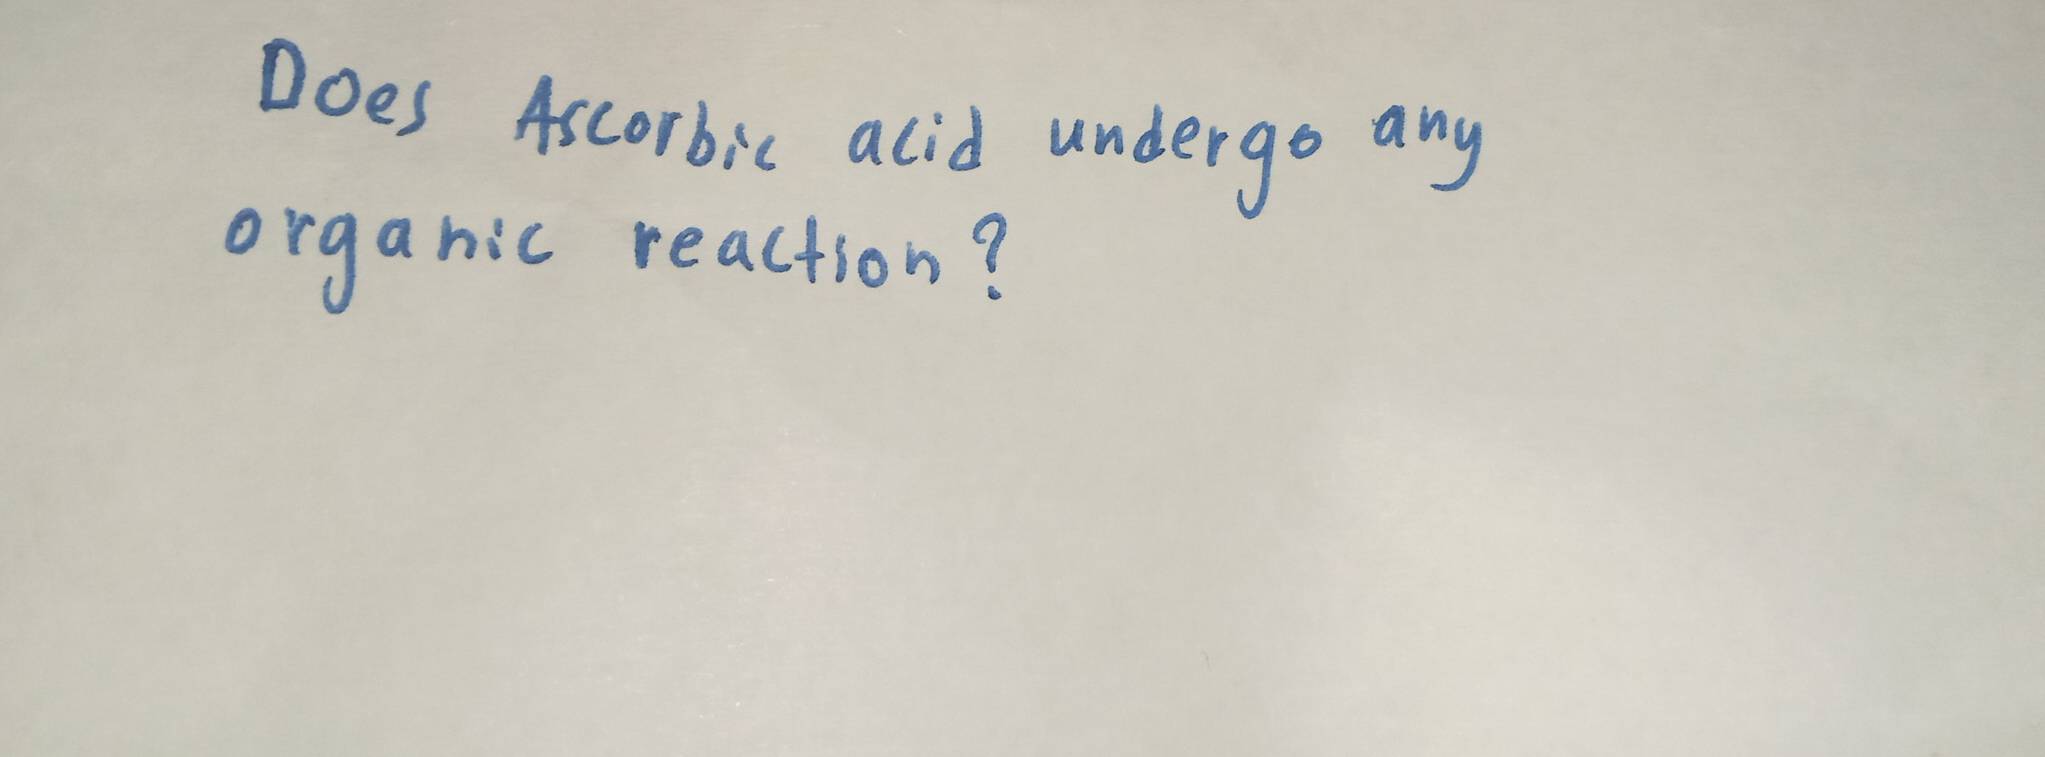 Does Ascorbic acid undergo any
organic reaction?